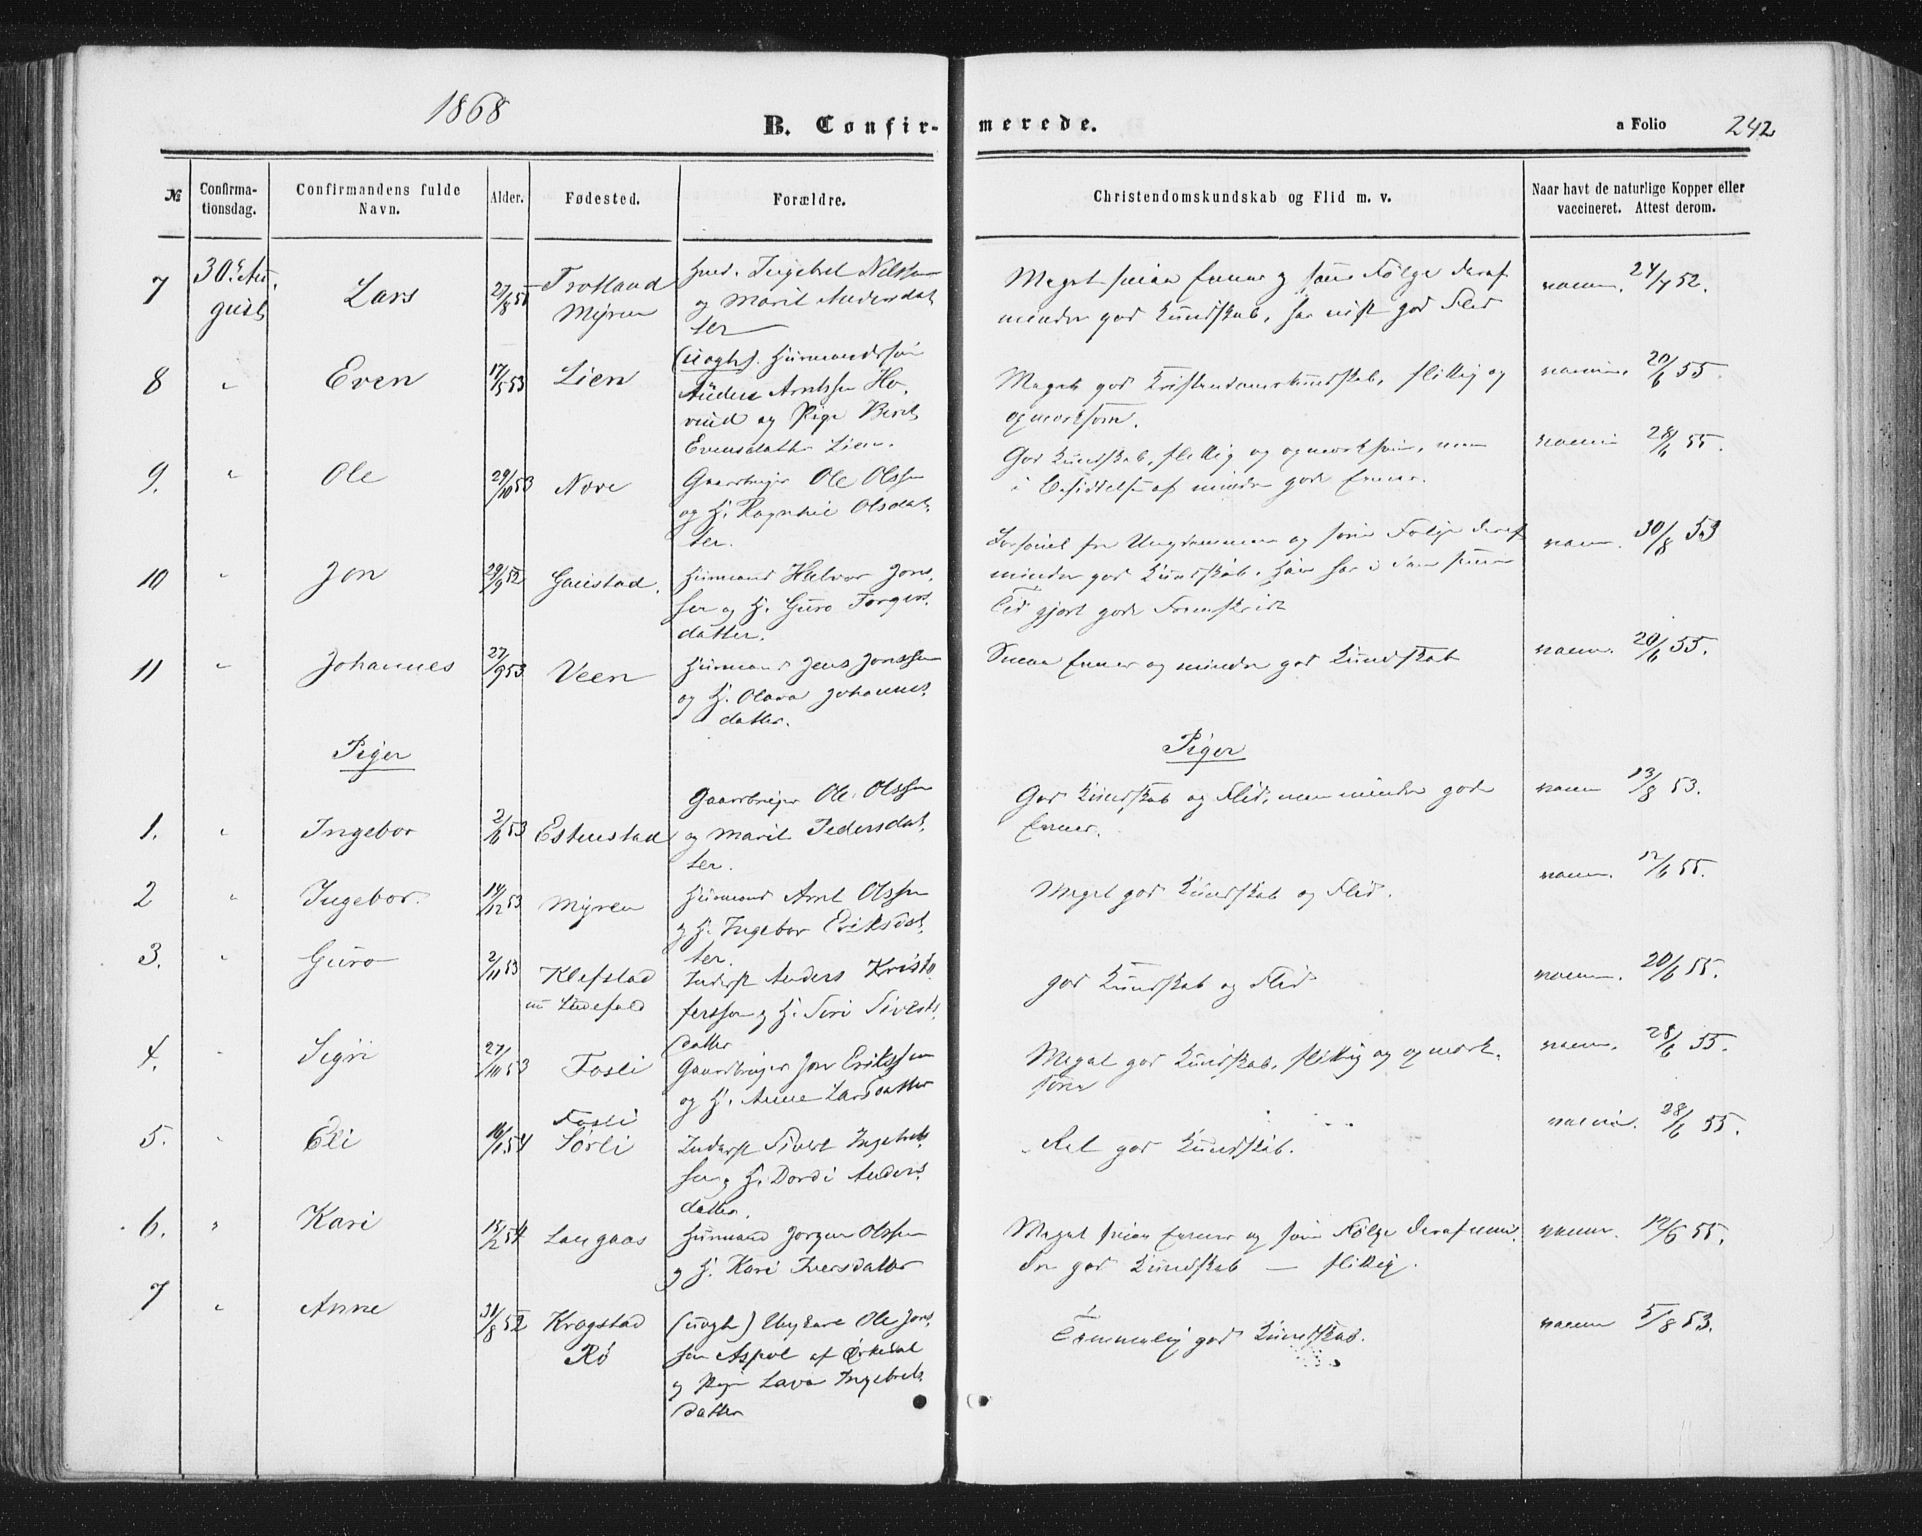 1868
B. Confirmerede.
a Folio 242
№
Confirmationsdag.
Confirmandens fulde Navn.
Alder.
Fødested.
Forældre.
Christendomskundskab og Flid m. v.
Naar havt de naturlige Kopper eller vaccineret. Attest derom.
7 30 August Lars 27/8 Myren
Ingebret Nilssen
og Marit Andersdat
ter
minder god Kundskab, har vist god Flid
24/7 52.
8 " Even 17/5 53 Lien
(uægte).
Anders Arntssen Ho
vind og Pige Berit
Evensdatter Lien.
Meget god Kristendomskundskab, flittig og
opmærksom.
20/6 55.
9. " Ole 29/10 53 Nove
Gaardbruger Ole Olssen
og H. Ragnhil Olsdat
ter.
God Kundskab, flittig og opmærksom, men
i Besiddelse af mindre gode Evner.
28/6 55.
10 " Jon 29/9 52 Gaustad.
Husmand Halvor Jons
sen og H. Guro Torgers
datter.
Forsømt fra Ungdommen og som Følge deraf
minder god Kundskab. Han har i den senere
Tid gjort gode Fremskridt
30/8 53
11 " Johannes 27/9 53 Veen
Husmand Jens Jonssen
og H. Olava Johannes
datter.
Smaa Evner og mindre god Kundskab
20/6 55.
Piger
Piger
1. " Ingebor 2/6 53 Estenstad
Gaardbruger Ole Olssen
og Marit Pedersdat
ter.
God Kundskab og Flid, men mindre gode
Evner.
13/8 53.
2 " Ingebor. 14/12 53 Myren
Husmand Arnt Olssen
og H. Ingebor Eriksdat
ter.
Meget god Kundskab og Flid.
12/6 55.
3. " Guro 2/11 53 Klefstad
Inderst Anders Kristo
fersson og H. Siri Siverts
datter
god Kundskab og Flid
20/6 55.
4. " Sigri 27/10 53 Fosli
Gaardbruger Jon Erikssen
og H. Anne Larsdatter
Meget god Kundskab, flittig og opmærk
som
28/6 55.
5. " Eli 16/1 54 Fosli
Sørli
Inderst Sivert Ingebrigts
sen og H. Dordi Anders
datter.
Ret god Kundskab.
28/6 55.
6. " Kari 15/2 54 Langaas
Husmand Jørgen Olssen
og H. Kari Iversdatter
Meget smaa Evner og som Følge deraf min
dre god Kundskab — flittig.
12/6 55.
7 " Anne 31/8 52 Krogstad
Rø
(uægte) Ungkarl Ole Jons
sen Aspol af Ørkedal
og Pige Lava Ingebrets
datter
Temmelig god Kundskab.
5/8 53.